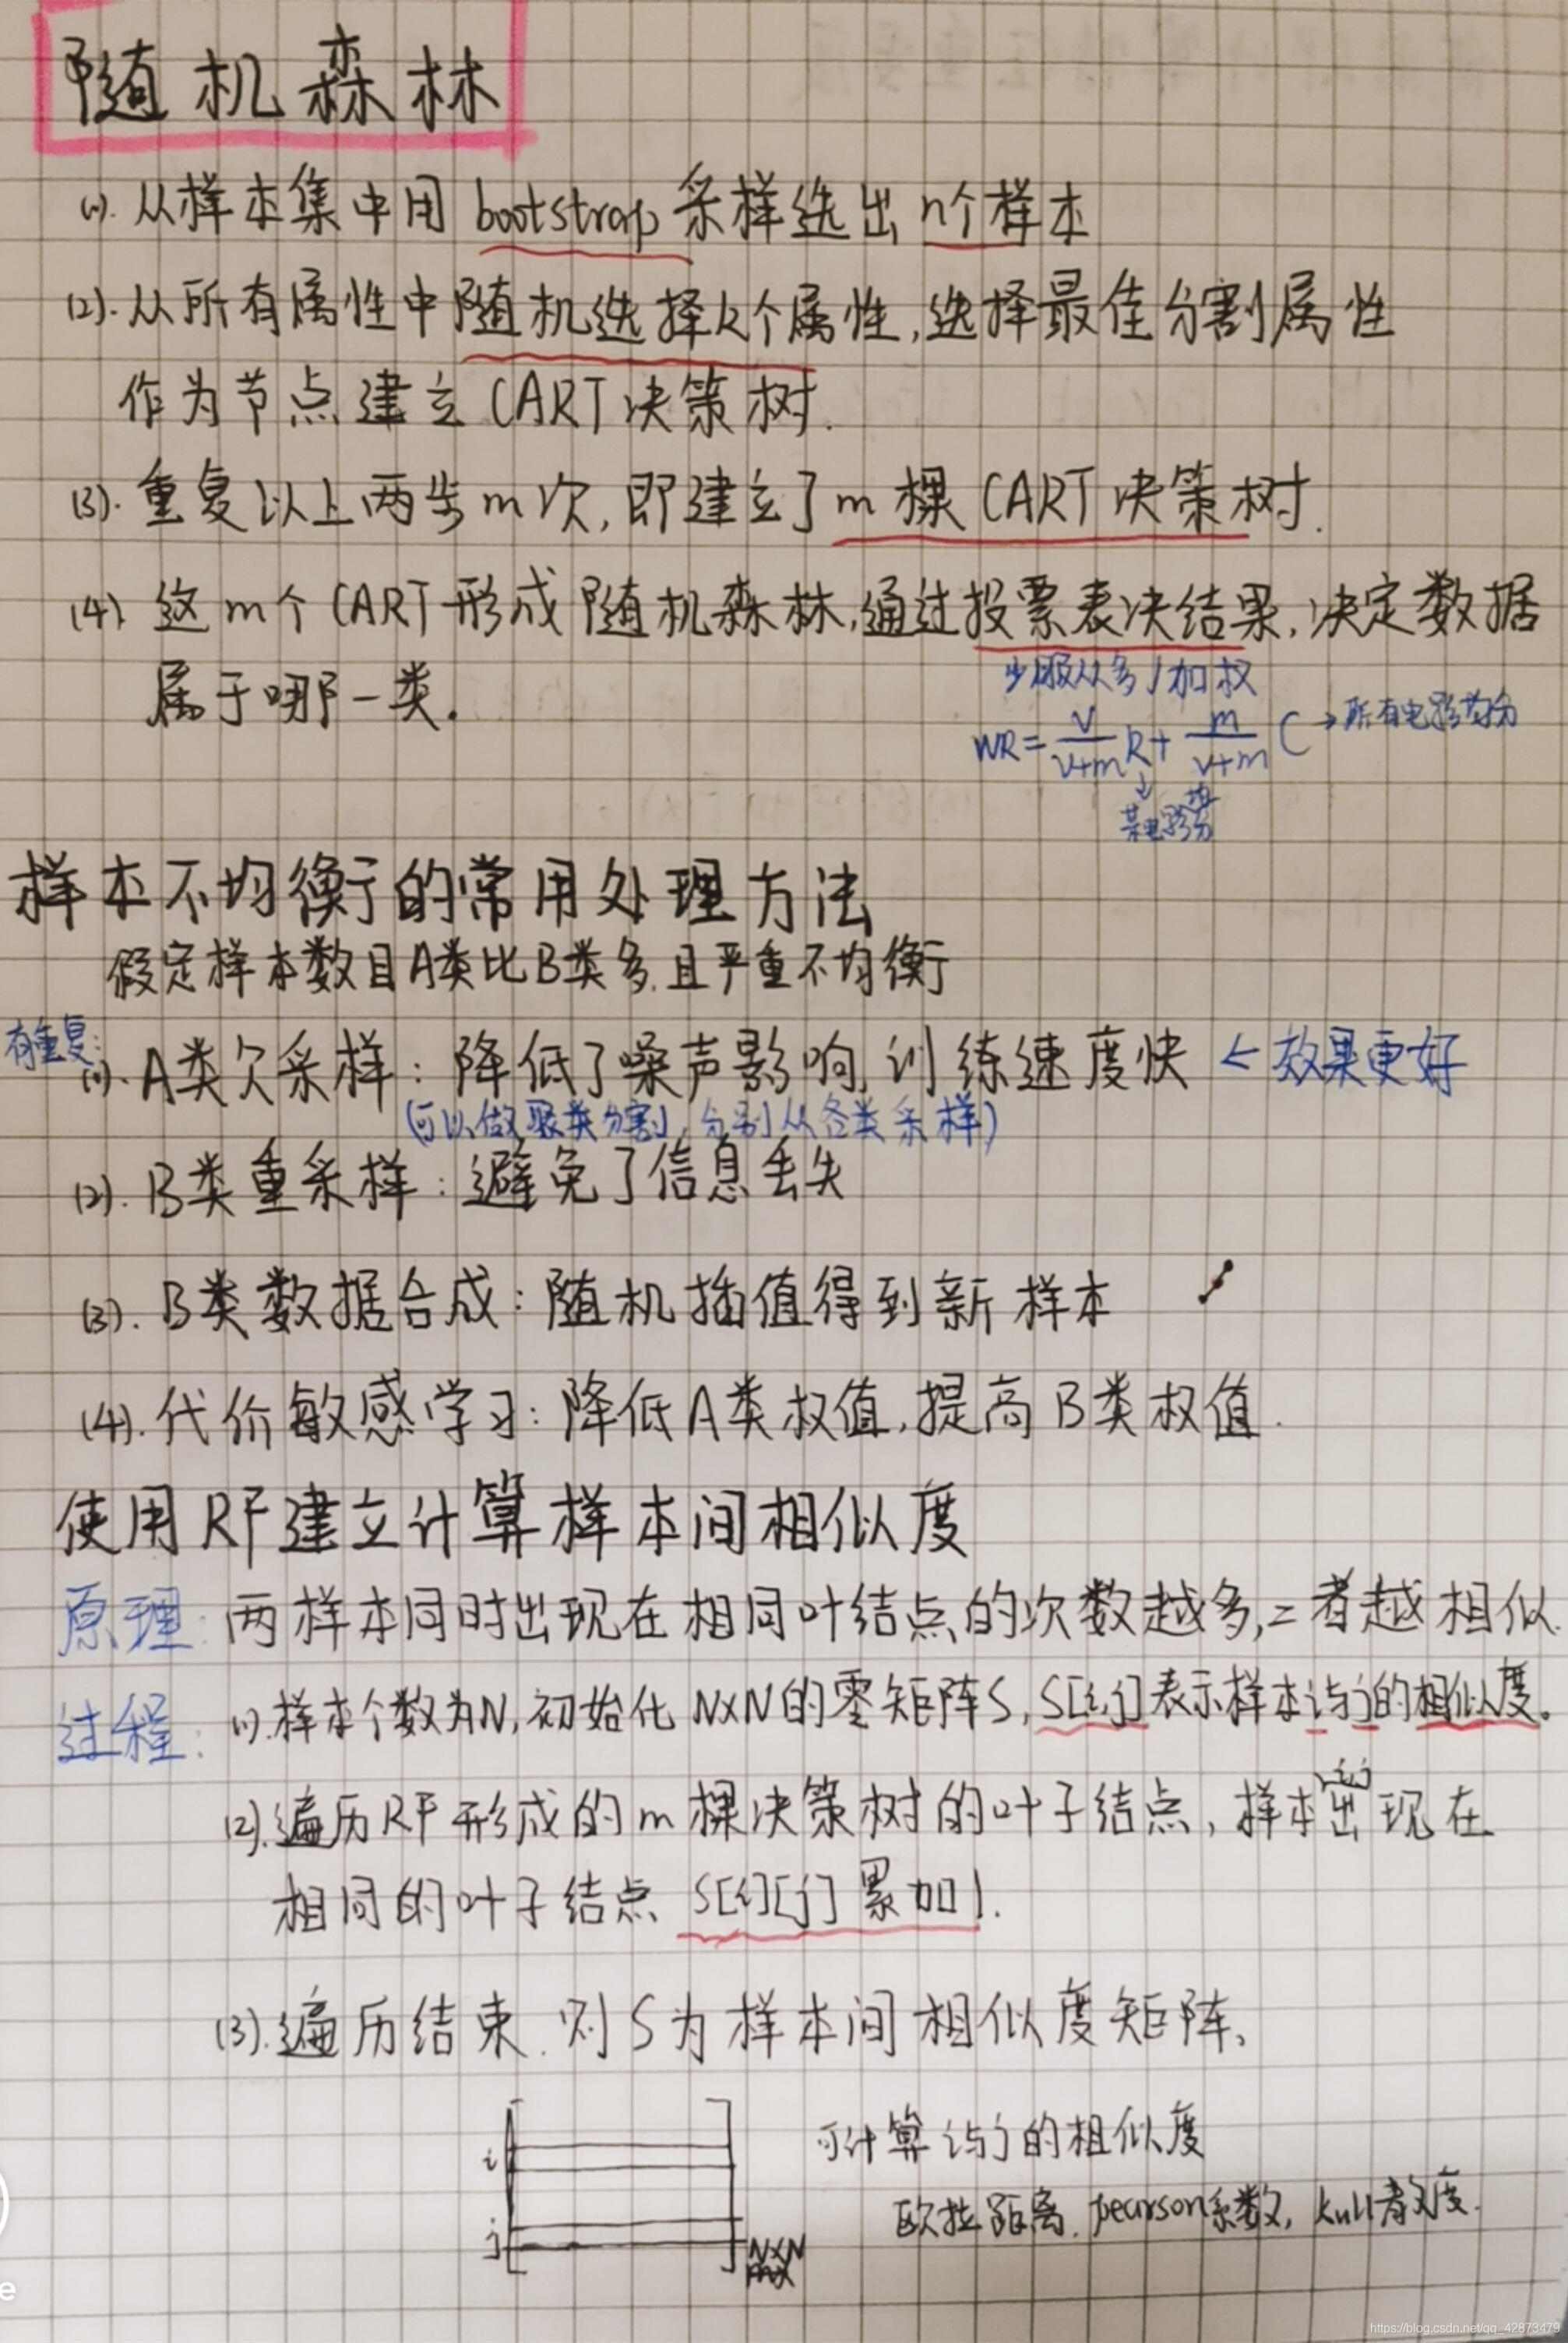 随机森林
(1). 从样本集中用 bootstrap 采样选出 n个样本
(2). 从所有属性中随机选择k个属性,选择最佳分割属性
作为节点建立 CART 决策树.
(3). 重复以上两步m次,即建立了 m 棵 CART 决策树.
(4) 这 m个 CART 形成随机森林,通过投票表决结果,决定数据
属于哪一类.
少服从多/加权
WR = v/(v+m) R + m/(v+m) C → 所有电影均分
↓
某电影均分
样本不均衡的常用处理方法
假定样本数目A类比B类多,且严重不均衡
有重复:
(1). A类欠采样: 降低了噪声影响,训练速度快 ← 效果更好
(可以做聚类分割,分别从各类采样)
(2). B类重采样: 避免了信息丢失
(3). B类数据合成: 随机插值得到新样本
(4). 代价敏感学习: 降低A类权值,提高B类权值.
使用RF建立计算样本间相似度
原理: 两样本同时出现在相同叶结点的次数越多,二者越相似.
过程: (1).样本个数为N,初始化 N×N的零矩阵S, S[i,j]表示样本i与j的相似度。
(2).遍历RF形成的m棵决策树的叶子结点,样本i,j出现在
相同的叶子结点 S[i][j] 累加1.
(3).遍历结束.则S为样本间相似度矩阵、
i
j
N×N
可计算i与j的相似度
欧拉距离, pearson系数, kull散度.
https://blog.csdn.net/qq_42873479
e